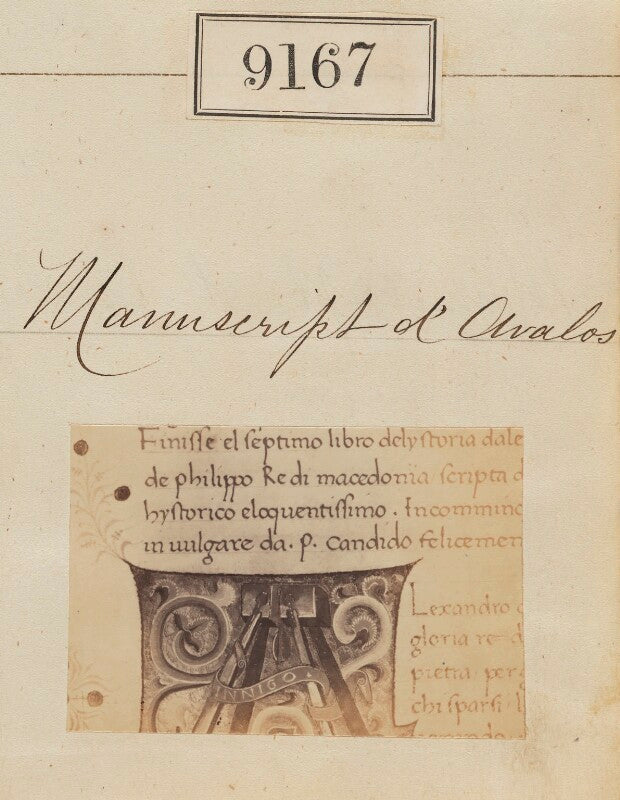 9167
Manuscript d'Avalos
Finisse el septimo libro dely storia dale
de philippo Re di macedonia scripta d
hystorico eloquentissimo . Incomminc
in uulgare da . P. Candido felicemen
Lexandro
gloria re d
pietra per
chi sparsi l
INNIGO